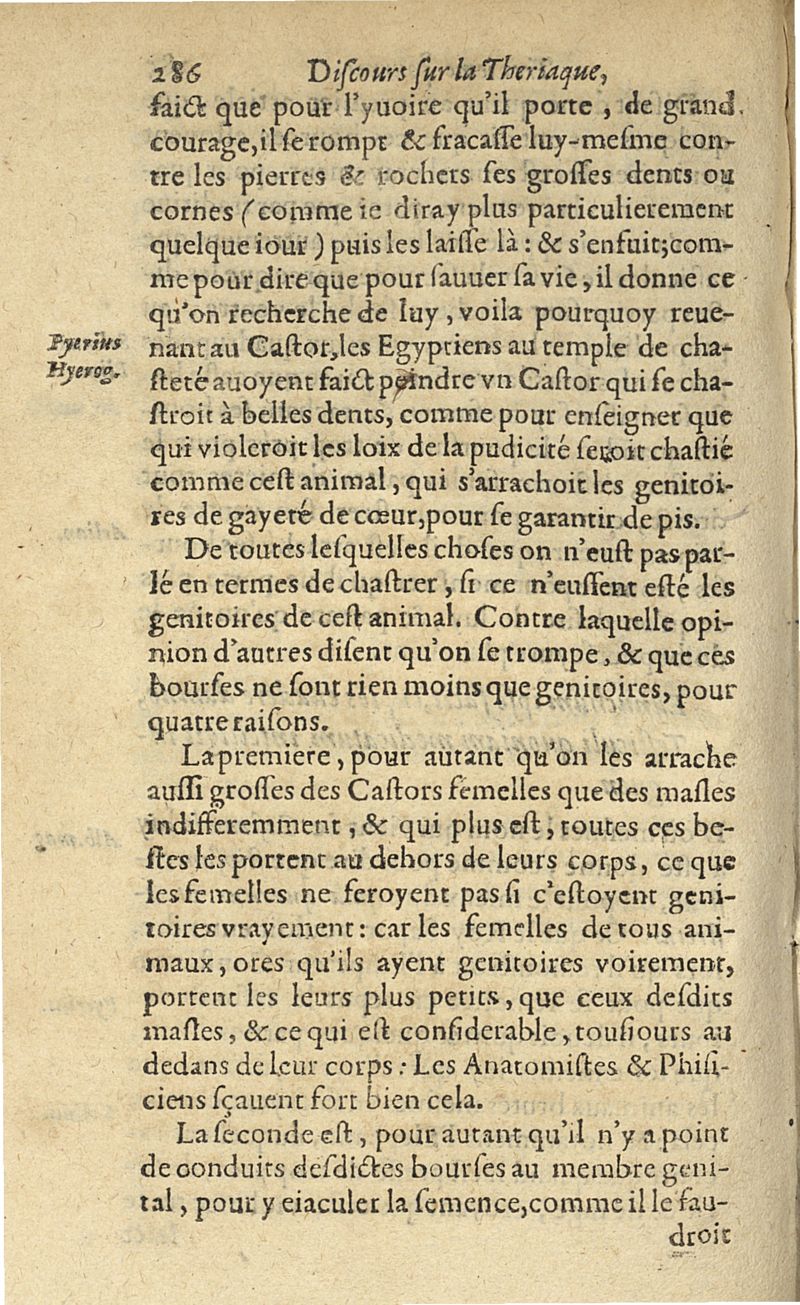 286 Diſcours ſur la Theriaque,
faict que pour l'yuoire qu'il porte, de grand
courage, il ſe rompt & fracaſſe luy-meſme con-
tre les pierres & rochers ſes groſſes dents ou
cornes (comme ie diray plus particulierement
quelque iour) puis les laiſſe là: & s'enfuit; com-
me pour dire que pour ſauuer ſa vie, il donne ce
qu'on recherche de luy, voila pourquoy reue-
Pyerius
nant au Caſtor, les Egyptiens au temple de cha-
Hyerog.
ſteté auoyent faict peindre vn Caſtor qui ſe cha-
ſtroit à belles dents, comme pour enſeigner que
qui violeroit les loix de la pudicité ſeroit chaſtié
comme ceſt animal, qui s'arrachoit les genitoi-
res de gayeté de cœur, pour ſe garantir de pis.
De toutes leſquelles choſes on n'euſt pas par-
lé en termes de chaſtrer, ſi ce n'euſſent eſté les
genitoires de ceſt animal. Contre laquelle opi-
nion d'autres diſent qu'on ſe trompe, & que ces
bourſes ne ſont rien moins que genitoires, pour
quatre raiſons.
La premiere, pour autant qu'on les arrache
auſſi groſſes des Caſtors femelles que des maſles
indifferemment, & qui plus eſt, toutes ces be-
ſtes les portent au dehors de leurs corps, ce que
les femelles ne feroyent pas ſi c'eſtoyent geni-
toires vrayement: car les femelles de tous ani-
maux, ores qu'ils ayent genitoires voirement,
portent les leurs plus petits, que ceux deſdits
maſles, & ce qui eſt conſiderable, touſiours au
dedans de leur corps: Les Anatomiſtes & Phiſi-
ciens ſçauent fort bien cela.
La ſeconde eſt, pour autant qu'il n'y a point
de conduits deſdictes bourſes au membre geni-
tal, pour y eiaculer la ſemence, comme il le fau-
droit